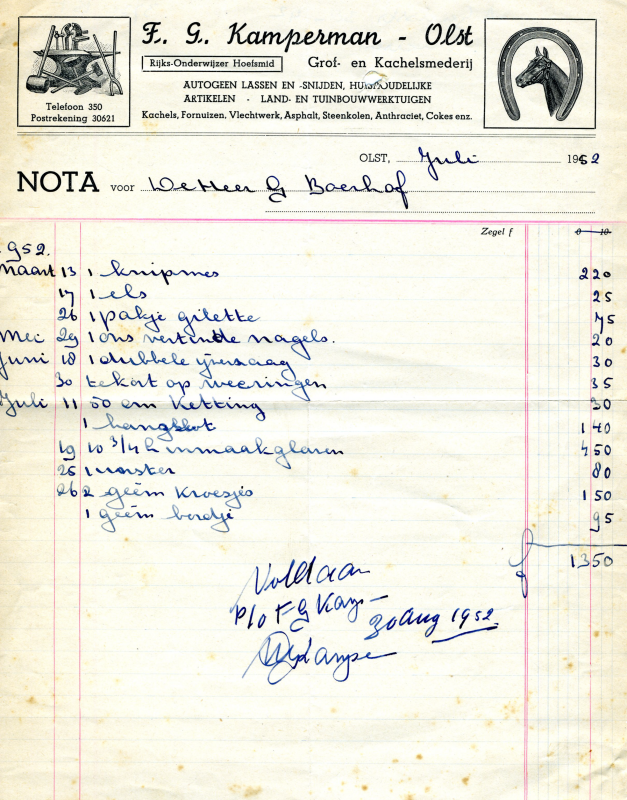 F. G. Kamperman - Olst
Rijks-Onderwijzer Hoefsmid
Grof- en Kachelsmederij
AUTOGEEN LASSEN EN -SNIJDEN, HUISHOUDELIJKE
ARTIKELEN - LAND- EN TUINBOUWWERKTUIGEN
Kachels, Fornuizen, Vlechtwerk, Asphalt, Steenkolen, Anthraciet, Cokes enz.
Telefoon 350
Postrekening 30621
OLST, Juli 1952
NOTA voor De Heer G Boerhof
Zegel f 0 10
1952.
Maart 13 1 knipmes 2 20
17 1 els 25
26 1 pakje gilette 75
Mei 29 1 ons vertinde nagels. 20
Juni 18 1 dubbele ijzerzaag 30
30 tekort op weeringen 35
Juli 11 50 cm Ketting 30
1 hangslot 1 40
19 10 3/4 l inmaakglazen 4 50
25 1 80
26 2 geëm Kroesjes 1 50
1 geëm bordje 95
f 13 50
Voldaan
p/o F G Kamp
30 Aug 1952